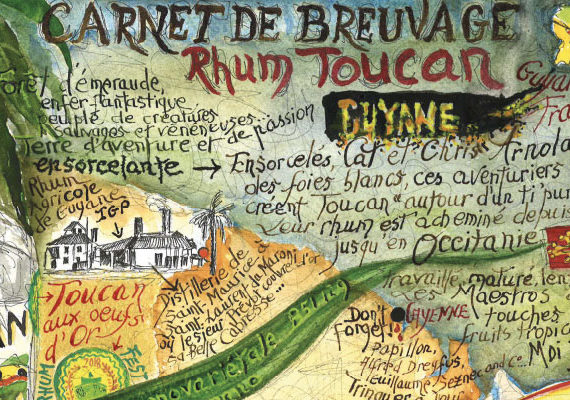 CARNET DE BREUVAGE
Rhum Toucan
GUYANE
Forêt d'émeraude,
enfer fantastique
peuplé de créatures
sauvages et vénéneuses...
Terre d'aventure et de passion
ensorcelante → Ensorcelés, Cat et Chris Arnola
des foies blancs, ces aventuriers
créent Toucan "autour d'un ti pun
leur rhum est acheminé depuis
jusqu'en Occitanie
Rhum
Agricole
de Guyane
IGP
Distillerie de
Saint Maurice à
Saint Laurent du Maroni
où le sieur Prévot couve l'or
sa belle Cabresse...
→Toucan
aux oeufs
d'Or
travaillé, maturé, len
ces Maestros
touches
fruits tropica
Don't
forget!
CAYENNE
Papillon,
Alfred Dreyfus,
Guillaume Seznec and co...
Trinquer à
RHUM
TEST
2018